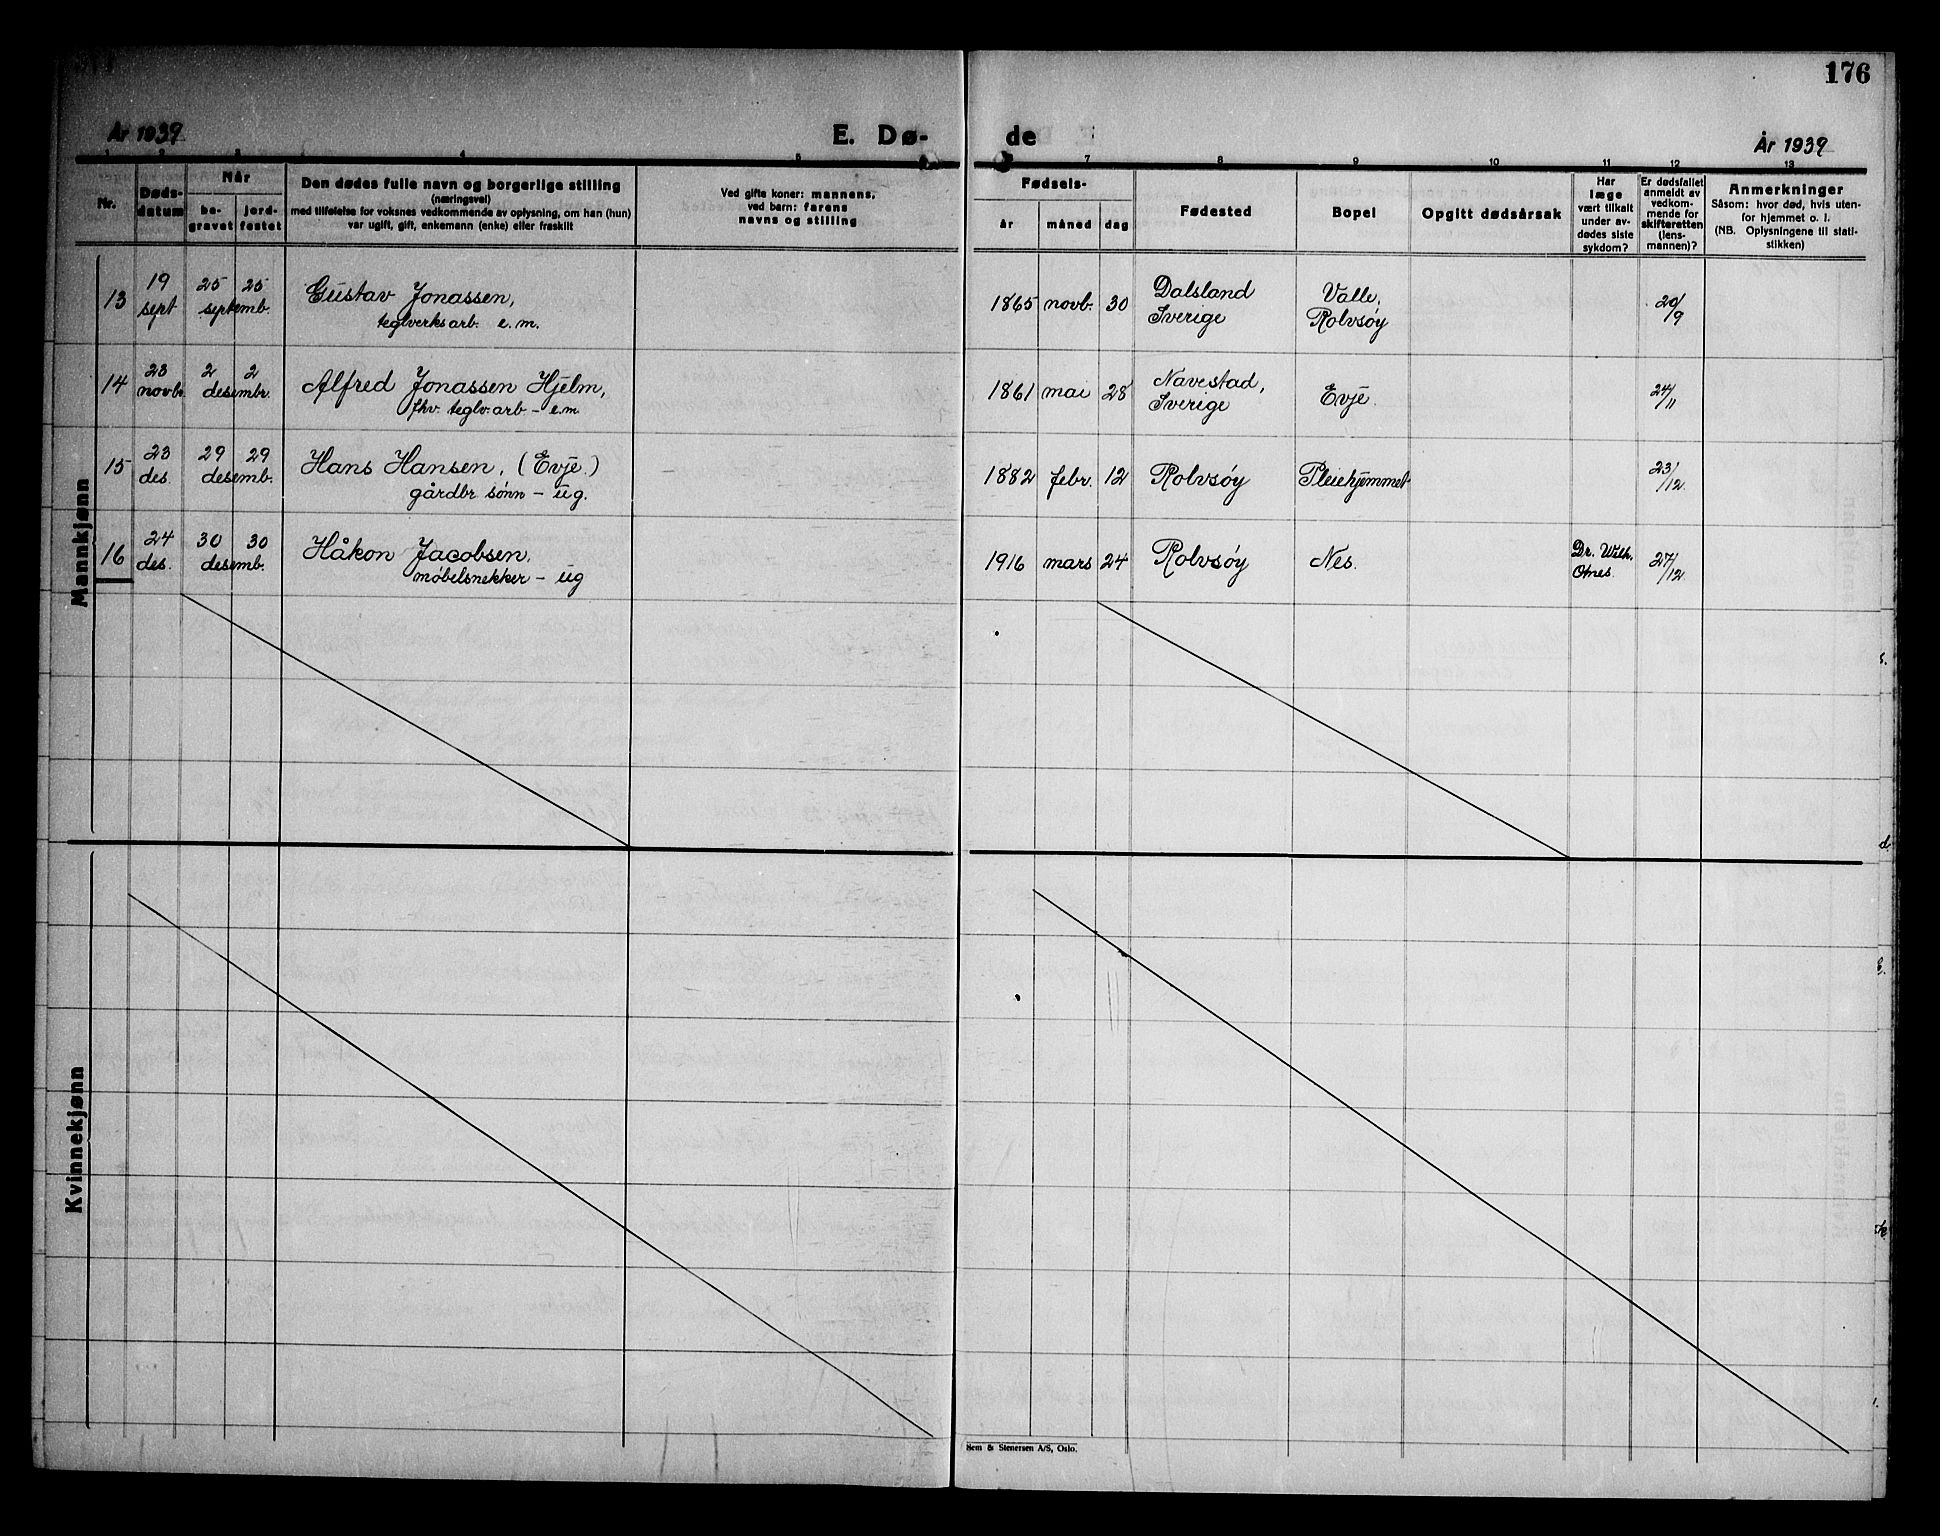 176
År 1939
E. Dø-
de
År 1939
1 2 3 4 5 6
7 8 9 10 11 12 13
Nr.
Døds-
datum
Når
be-
gravet
jord-
festet
Den dødes fulle navn og borgerlige stilling
(næringsvei)
med tilføielse for voksnes vedkommende av oplysning, om han (hun)
var ugift, gift, enkemann (enke) eller fraskilt
Ved gifte koner: mannens,
ved barn: farens
navns og stilling
Fødsels-
år
måned
dag
Fødested
Bopel
Opgitt dødsårsak
Har
læge
vært tilkalt
under av-
dødes siste
sykdom?
Er dødsfallet
anmeldt av
vedkom-
mende for
skifteretten
(lens-
mannen)?
Anmerkninger
Såsom: hvor død, hvis uten-
for hjemmet o. l.
(NB. Oplysningene til stati-
stikken)
Mannkjønn
13
19
sept
25 25
septemb.
Gustav Jonassen,
teglverksarb. e.m.
1865 novb. 30
Dalsland
Sverige
Valle,
Rolvsøy
20/9
14
23
novb.
2 2
desembr.
Alfred Jonassen Hjelm,
fhv. teglv.arb - e.m.
1861 mai 28
Navestad,
Sverige
Evje.
24/11
15
23
des.
29 29
desemb.
Hans Hansen, (Evje.)
gårdbr sønn - ug.
1882 febr. 12
Rolvsøy
Pleiehjemmet
23/12.
16
24
des.
30 30
desemb.
Håkon Jacobsen,
møbelsnekker - ug
1916 mars 24
Rolvsøy
Nes.
Dr. Wilh.
Otnes.
27/12
Kvinnekjønn
Sem & Stenersen A/S, Oslo.